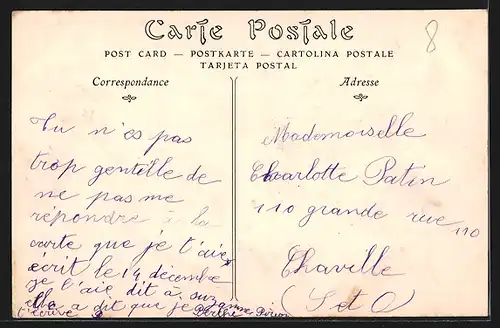 Carte Postale
POST CARD — POSTKARTE — CARTOLINA POSTALE
TARJETA POSTAL
8
Correspondance
Tu n'es pas
trop gentille de
ne pas me
répondre à la
carte que je t'aie
écrit le 14 décembre
je l'aie dit à Suzanne
elle a dit que je
t'écrive
Adresse
Mademoiselle
Charlotte Patin
110 grande rue 110
Chaville
(S et O)